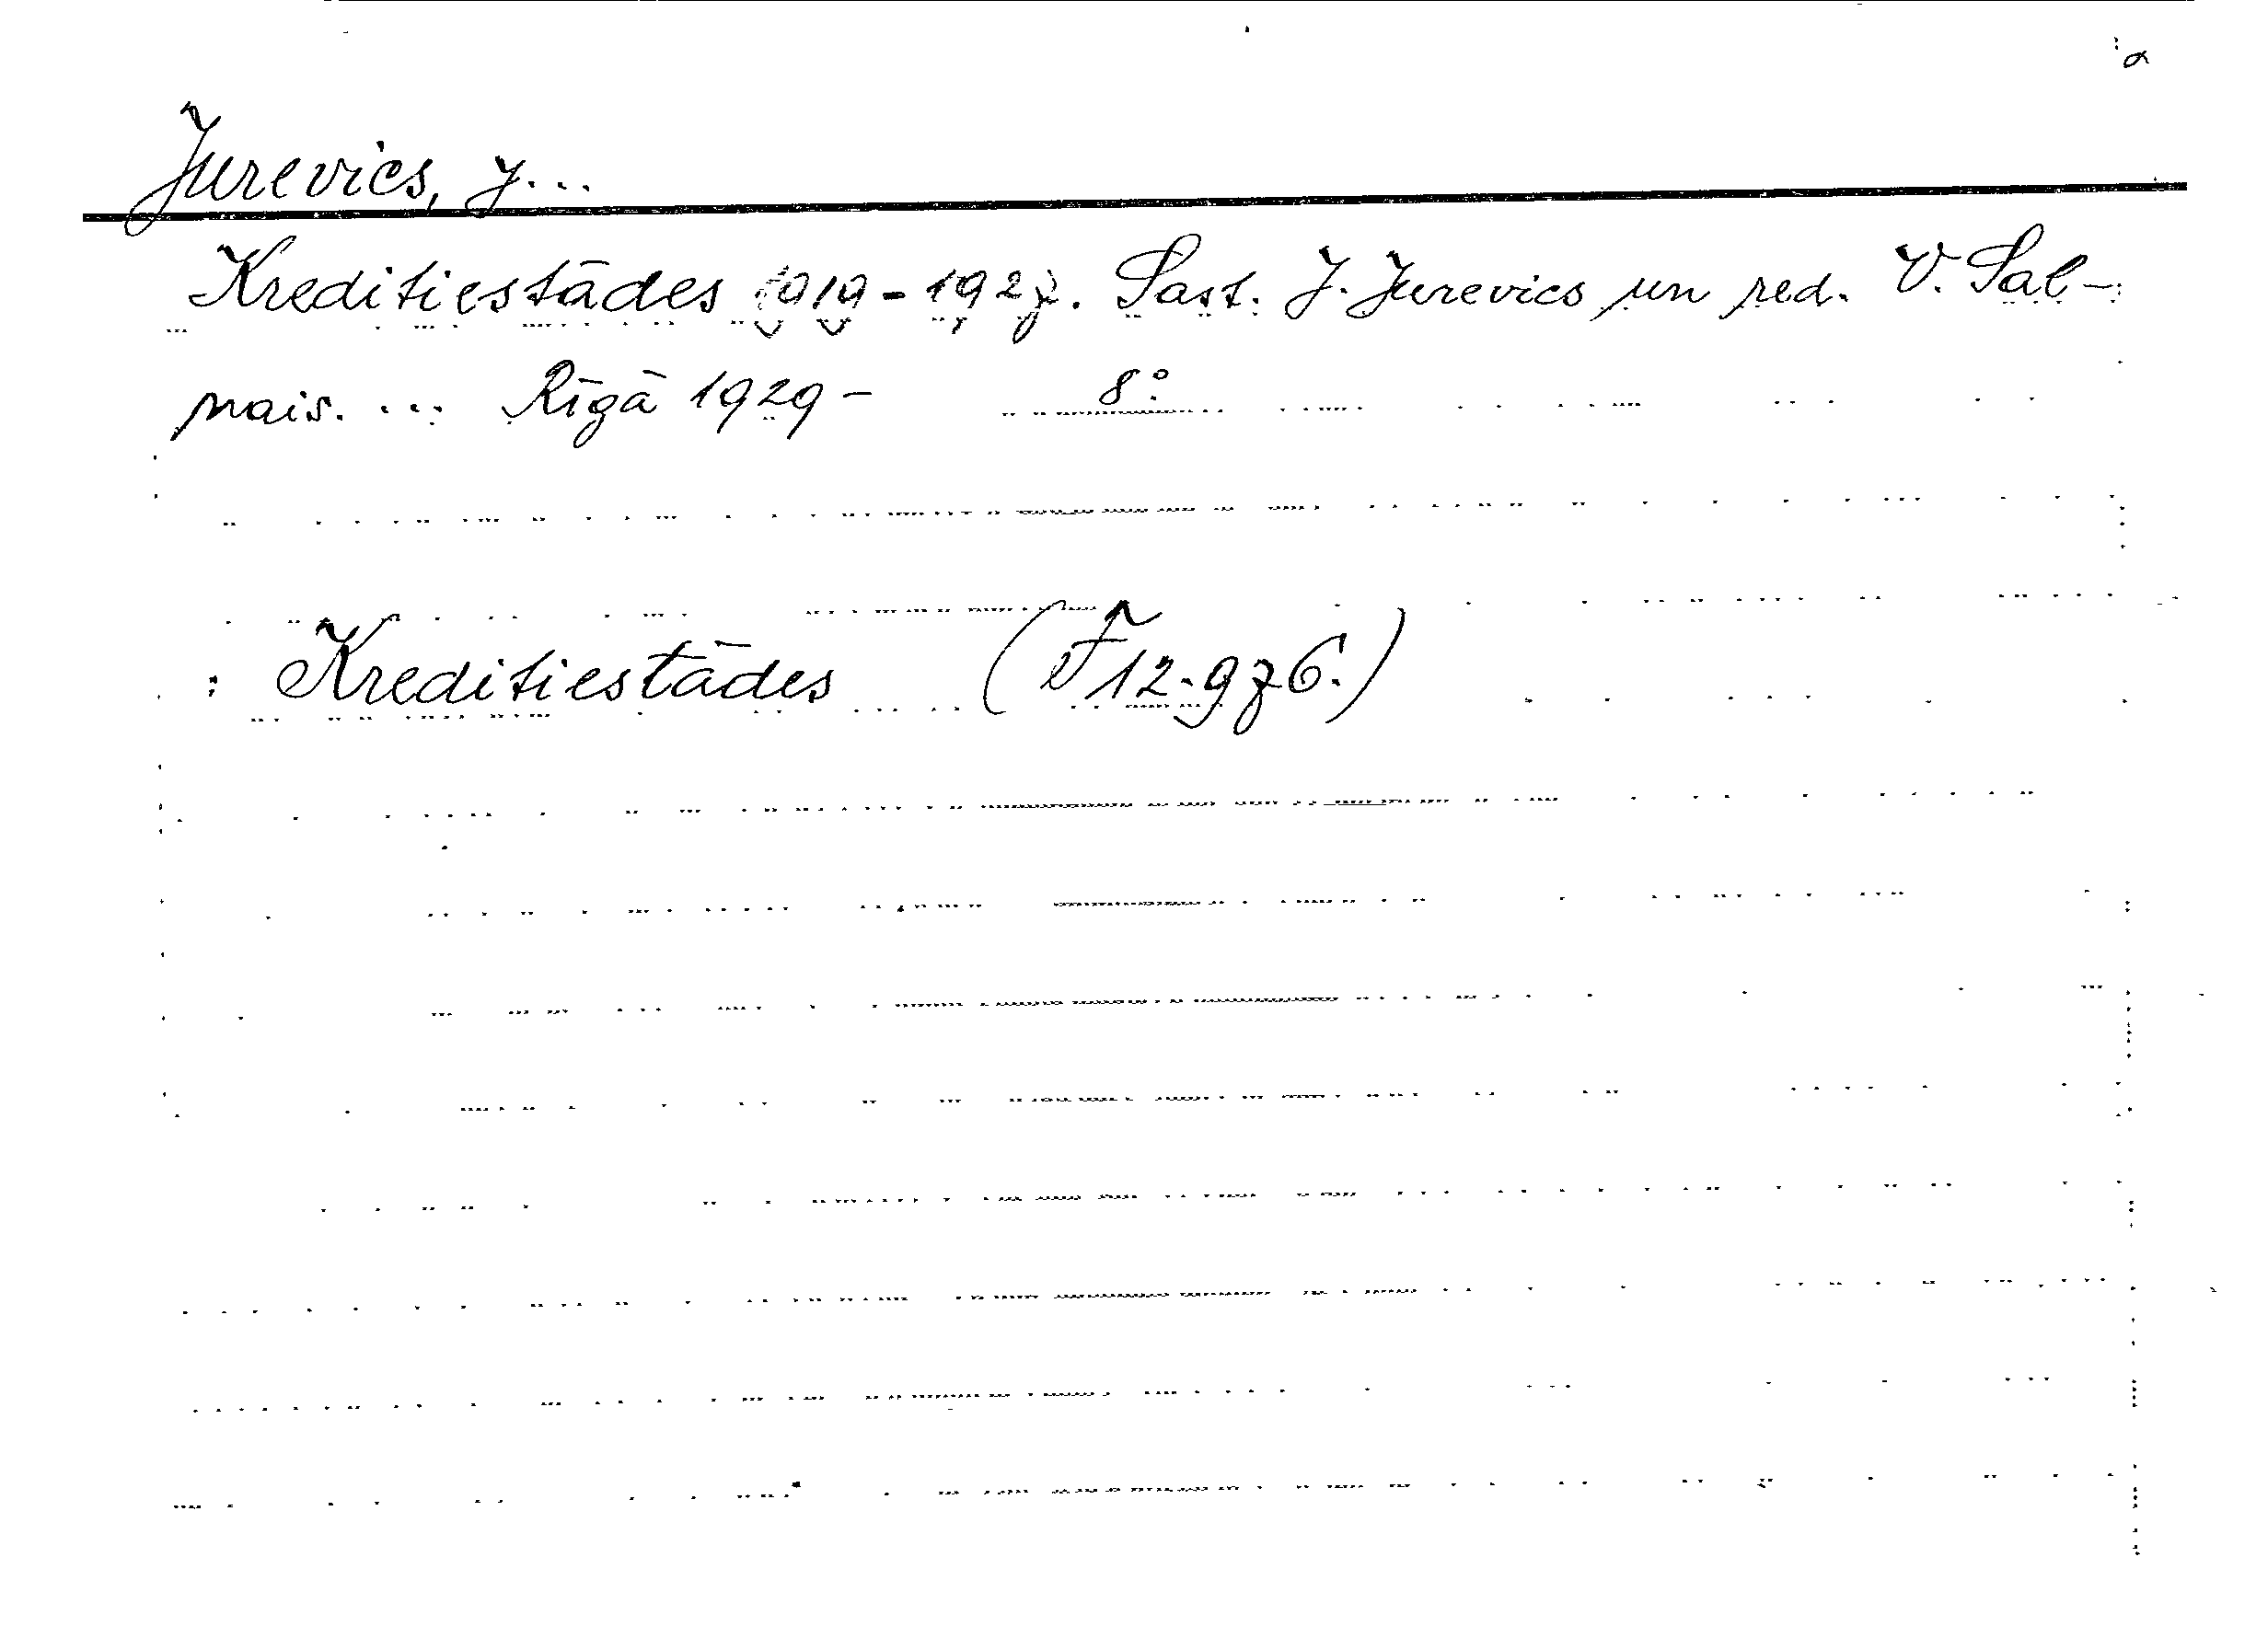 Jurevics, J...
Kreditiestādes 1919-1927. Sast. J. Jurevics un red. V. Sal-
nais. ... Rīgā 1929- 8°.
: Kreditiestādes (F12-976.)